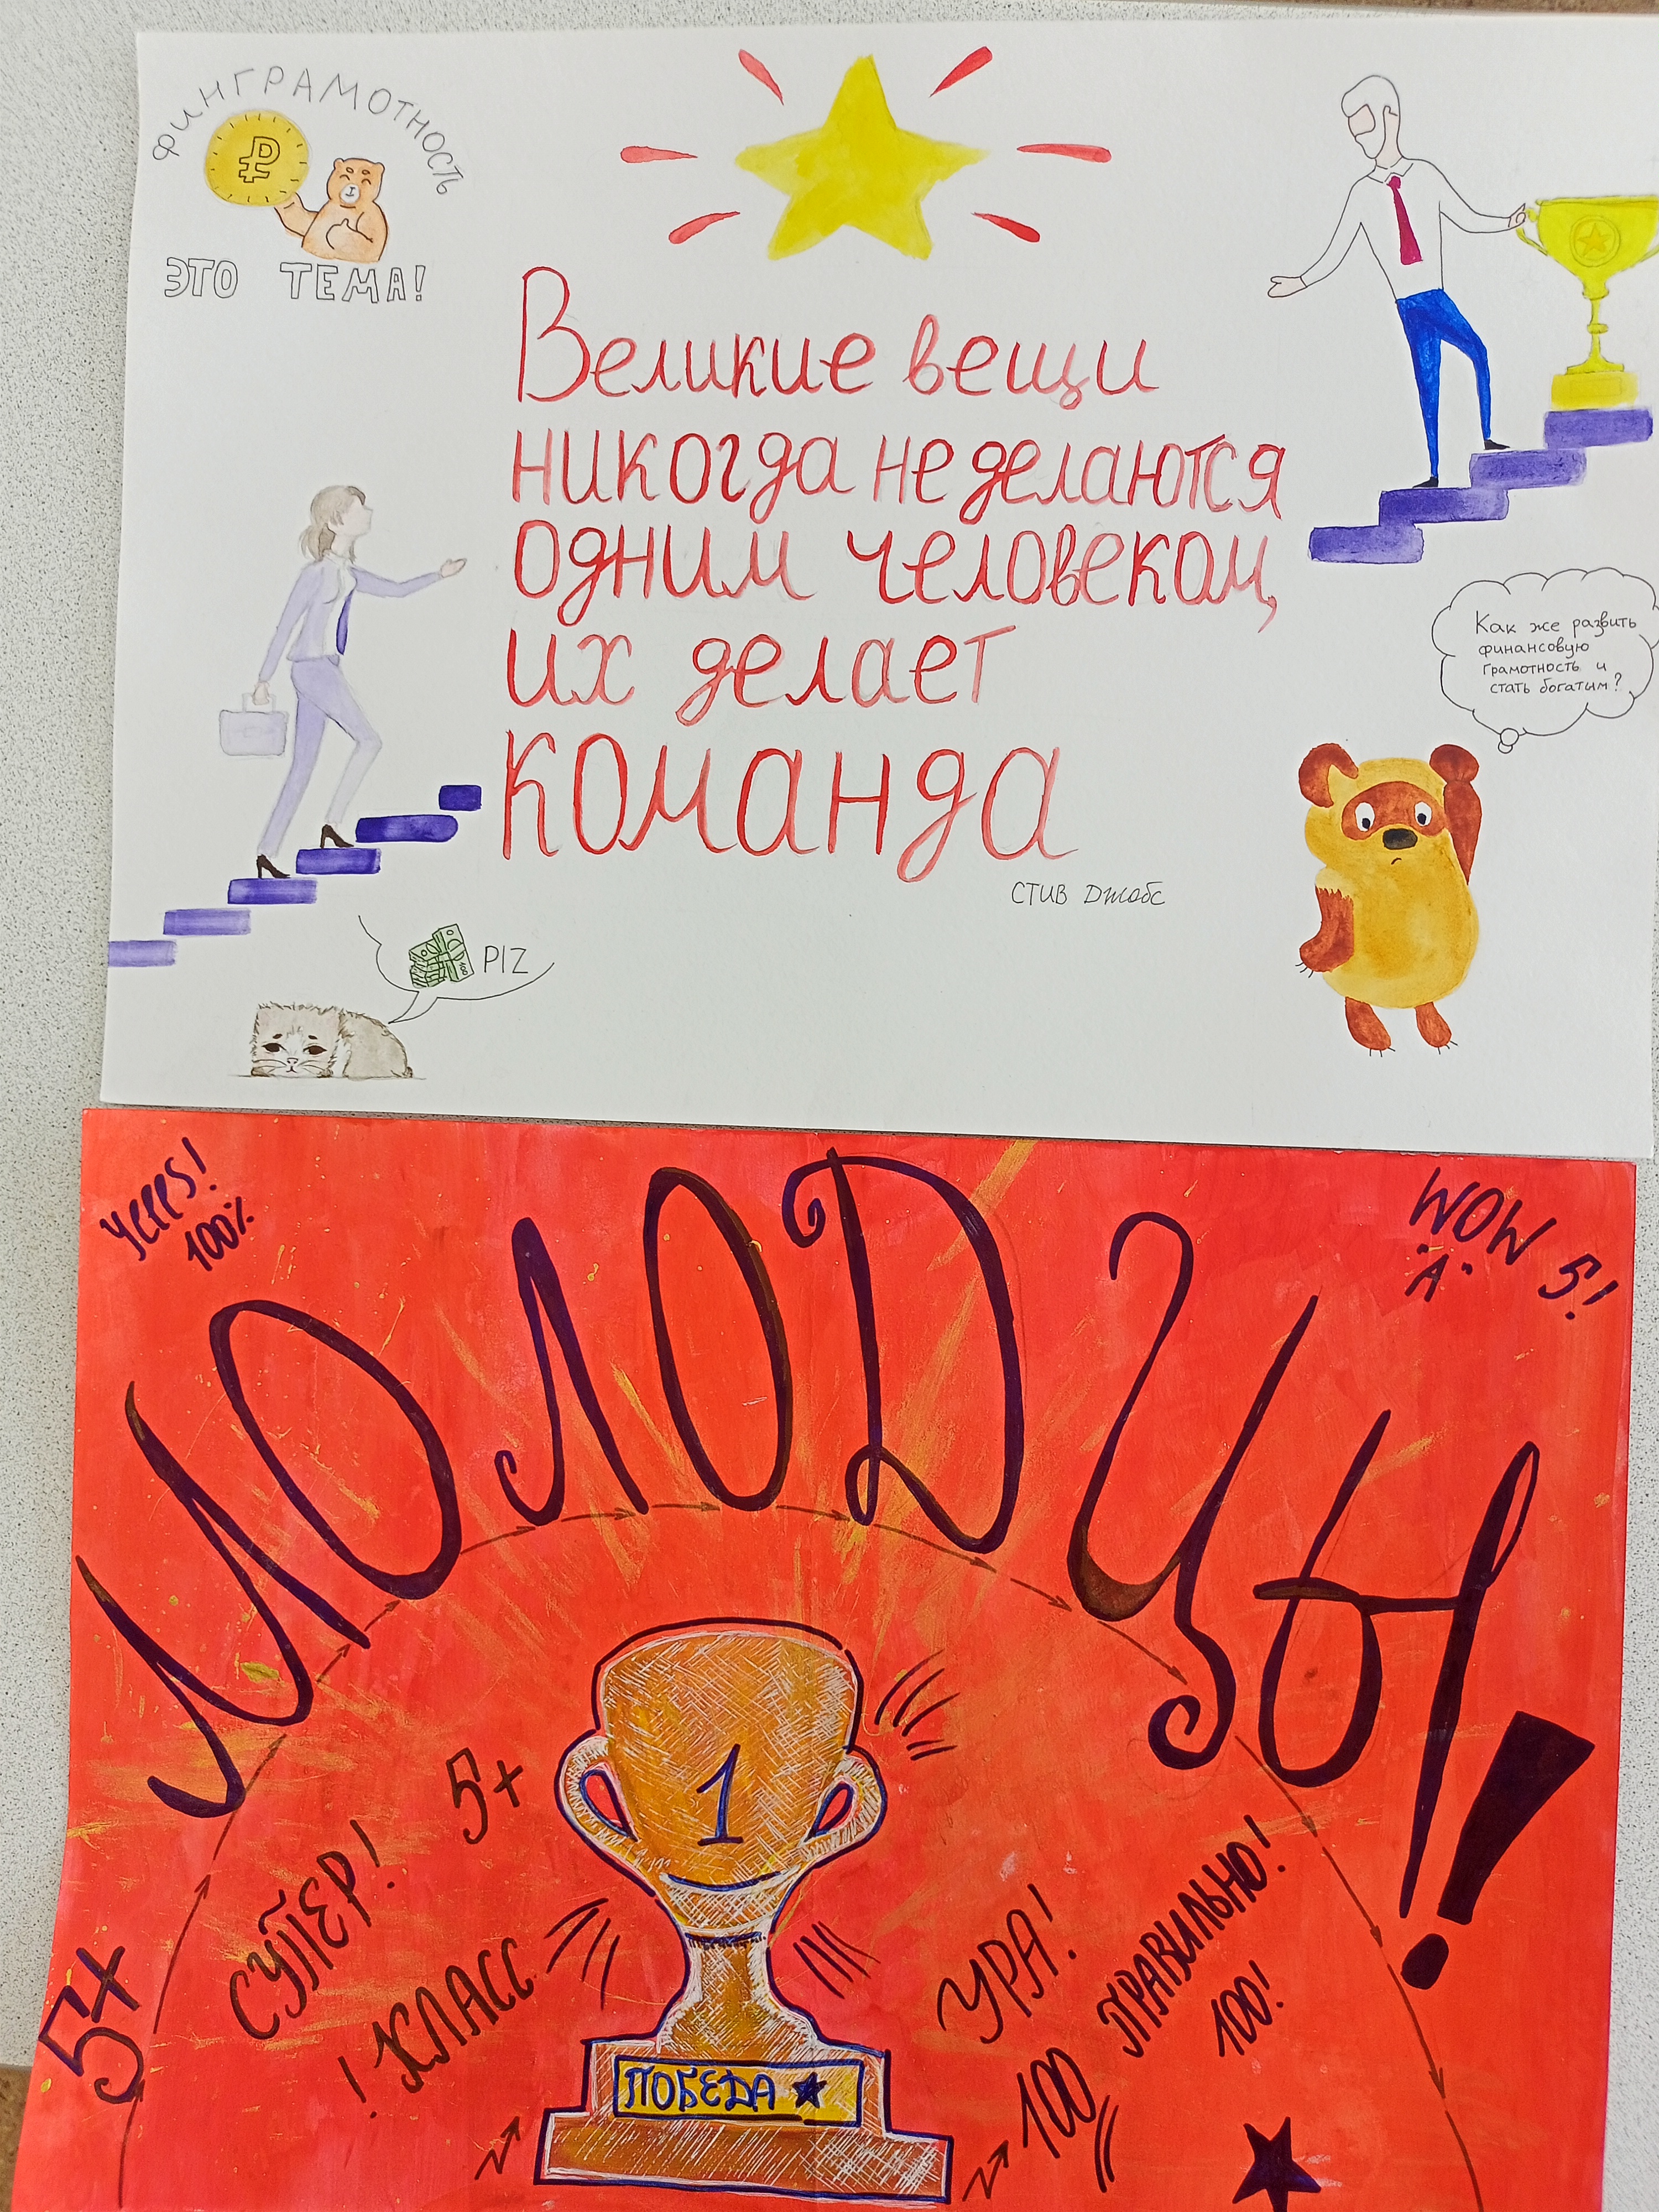 ФИНГРАМОТНОСТЬ
₽
ЭТО ТЕМА!
Великие вещи
никогда не делаются
одним человеком,
их делает
команда
СТИВ Джобс
Как же развить
финансовую
грамотность и
стать богатым?
100
PIZ
Yeees!
100%
WOW 5!
"A"
МОЛОДЦЫ!
5+
5+
СУПЕР!
! КЛАСС
1
ПОБЕДА
УРА!
ПРАВИЛЬНО!
100!
100